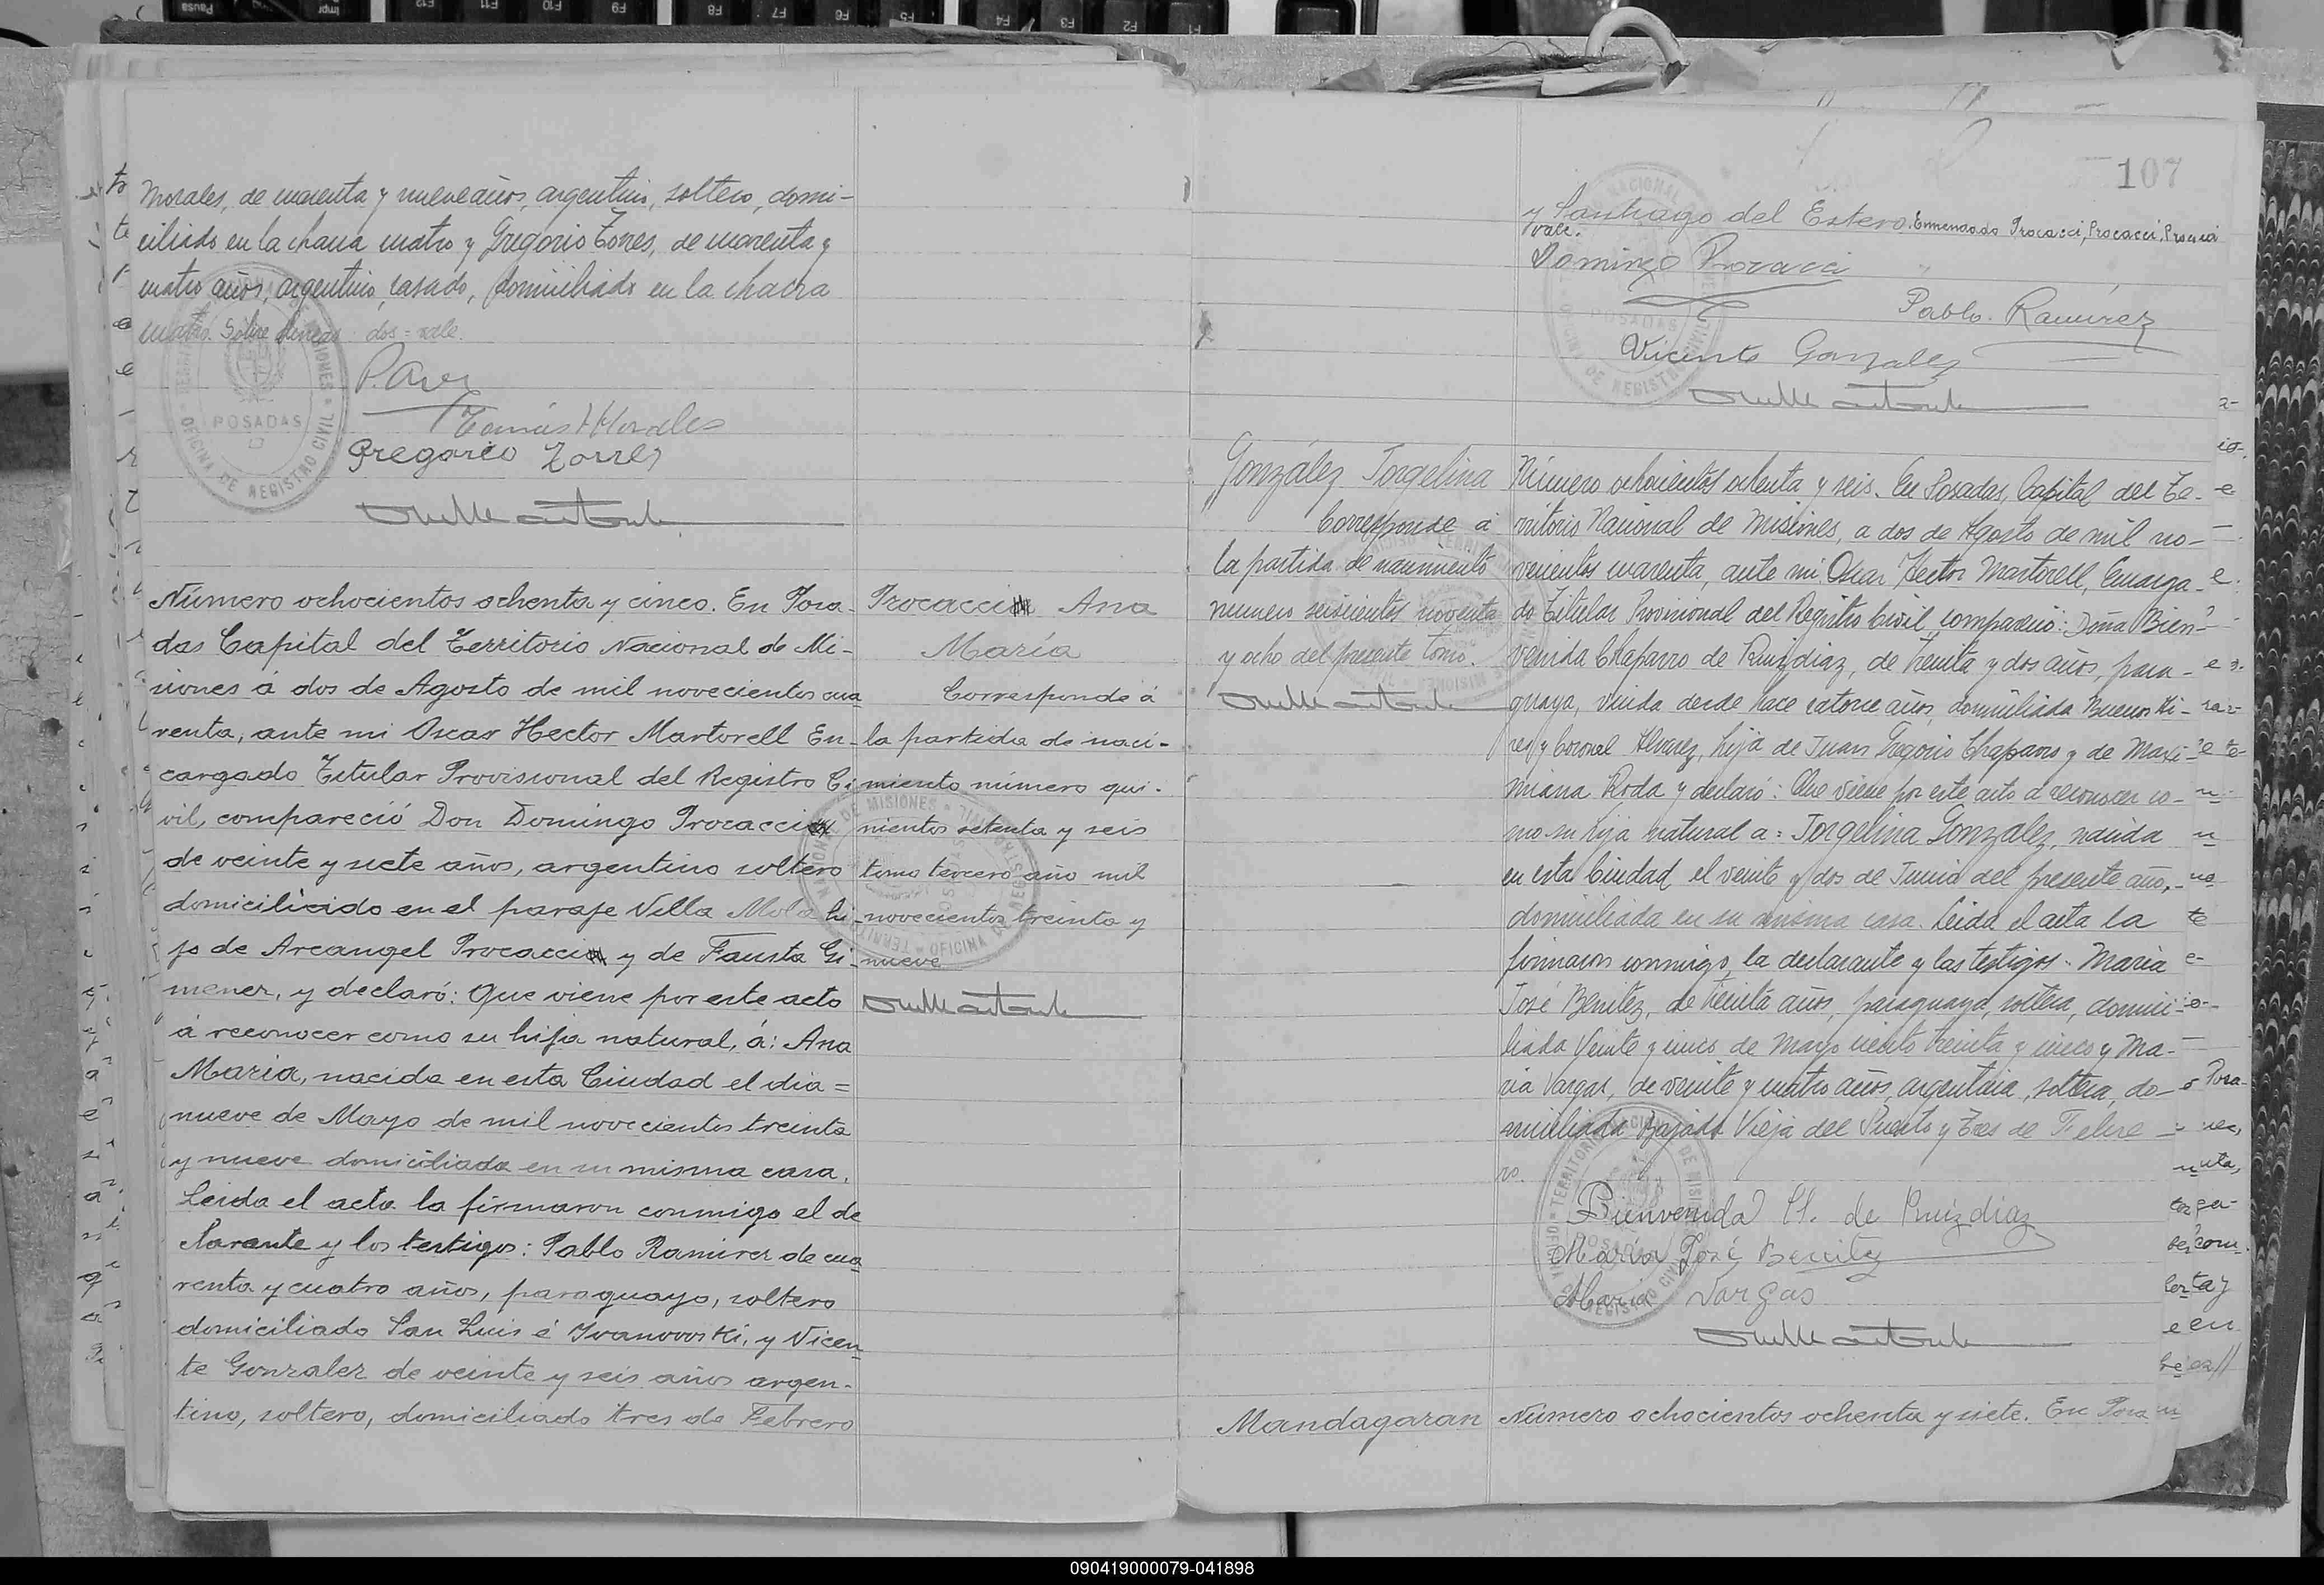 Morales, de cuarenta y nueve años, argentino, soltero, domi-
ciliado en la chacra cuatro y Gregorio Torres, de cuarenta y
cuatro años, argentino, casado, domiciliado en la chacra
cuatro. Sobre lineas dos = vale.
Tomás Morales
Gregorio Torres
POSADAS
OFICINA DE REGISTRO CIVIL
Procacci Ana
María
Corresponde á
la partida de naci-
miento número qui-
nientos setenta y seis
tomo tercero año mil
novecientos treinta y
nueve
Número ochocientos ochenta y cinco. En Posa-
das Capital del Territorio Nacional de Mi-
siones á dos de Agosto de mil novecientos cua
renta, ante mi Oscar Hector Martorell En-
cargado Titular Provisional del Registro Ci-
vil, compareció Don Domingo Procacci
de veinte y siete años, argentino soltero
domiciliado en el paraje Villa Mola hi
jo de Arcangel Procacci y de Fausta Gi-
menez, y declaró: Que viene por este acto
á reconocer como su hija natural, á: Ana
Maria, nacida en esta Ciudad el dia =
nueve de Mayo de mil novecientos treinta
y nueve domiciliada en su misma casa.
Leida el acta la firmaron conmigo el de
clarante y los testigos: Pablo Ramirez de cua
renta y cuatro años, paraguayo, soltero
domiciliado San Luis é Ivanovoski, y Vicen
te Gonzalez de veinte y seis años argen-
tino, soltero, domiciliado tres de Febrero
107
y Santiago del Estero. Enmendado Procacci, Procacci, Procacci
vale.
Domingo Procacci
Pablo Ramírez
Vicente Gonzalez
González Jorgelina
Corresponde á
la partida de nacimiento
numero seiscientos noventa
y ocho del presente tomo.
Número ochocientos ochenta y seis. En Posadas, Capital del Te-
rritorio Nacional de Misiones, a dos de Agosto de mil no-
vecientos cuarenta, ante mi Oscar Hector Martorell, Encarga-
do Titular Provisional del Registro Civil, compareció: Doña Bien-
venida Chaparro de Ruizdiaz, de treinta y dos años, para-
guaya, viuda desde hace catorce años, domiciliada Buenos Ai-
res y Coronel Alvarez, hija de Juan Gregorio Chaparro y de Maxi-
miana Roda y declaró: Que viene por este acto a reconocer co-
mo su hija natural a: Jorgelina Gonzalez, nacida
en esta Ciudad el veinte y dos de Junio del presente año,
domiciliada en su misma casa. Leida el acta la
firmaron conmigo, la declarante y las testigos: Maria
José Benitez, de treinta años, paraguaya, soltera, domici-
liada Veinte y cinco de Mayo ciento treinta y cinco y Ma-
ria Vargas, de veinte y cuatro años, argentina, soltera, do-
miciliada Bajada Vieja del Puerto y Tres de Febre
ro.
Bienvenida Ch. de Ruizdiaz
María José Benitez
Maria Vargas
Mandagaran
Número ochocientos ochenta y siete. En Posa
090419000079-041898